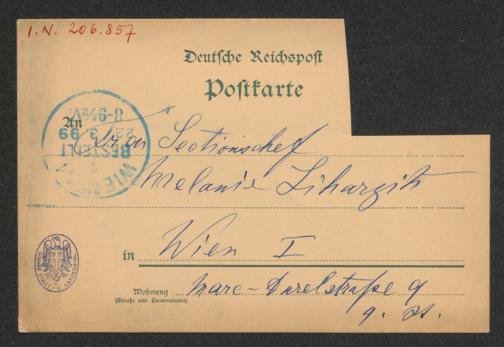 I. N. 206.857
Deutsche Reichspost
Postkarte
An
Sectionschef
Melanie Liharzik
in Wien I
Wohnung
(Straße und Hausnummer)
Marc-Aurelstraße 9
9. St.
WIEN 1/1
BESTELLT
22 3 99
8-9½V.